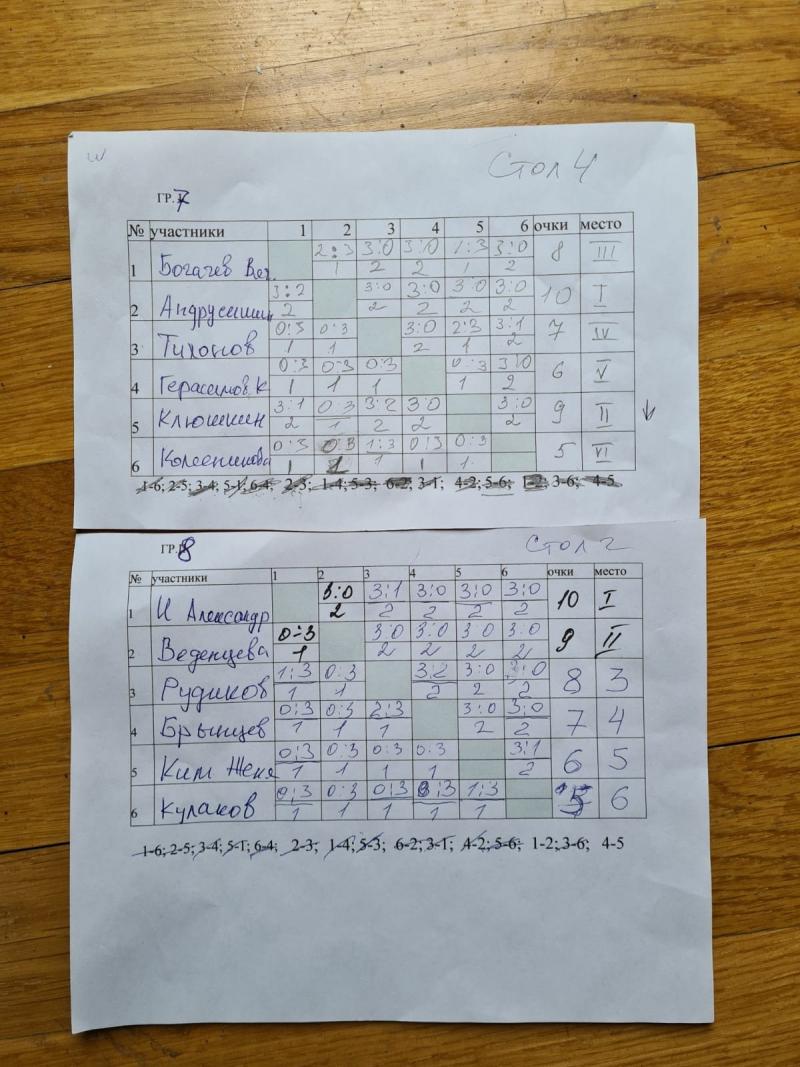 Стол 4
ГР.7
№ участники 1 2 3 4 5 6 очки место
1 Богачев Вяч. 2:3 3:0 3:0 1:3 3:0 8 III
1 2 2 1 2
2 Андрусишин 3:2 3:0 3:0 3:0 3:0 10 I
2 2 2 2 2
3 Тихонов 0:3 0:3 3:0 2:3 3:1 7 IV
1 1 2 1 2
4 Герасимов К 0:3 0:3 0:3 0:3 3:0 6 V
1 1 1 1 2
5 Клюшкин 3:1 0:3 3:2 3:0 3:0 9 II ↓
2 1 2 2 2
6 Колесникова 0:3 0:3 1:3 0:3 0:3 5 VI
1 1 1 1 1
1-6; 2-5; 3-4; 5-1; 6-4; 2-3; 1-4; 5-3; 6-2; 3-1; 4-2; 5-6; 1-2; 3-6; 4-5
ГР.8 Стол 2
№ участники 1 2 3 4 5 6 очки место
1 И Александр 3:0 3:1 3:0 3:0 3:0 10 I
2 2 2 2 2
2 Веденцева 0:3 3:0 3:0 3:0 3:0 9 II
1 2 2 2 2
3 Рудиков 1:3 0:3 3:2 3:0 3:0 8 3
1 1 2 2 2
4 Брынцев 0:3 0:3 2:3 3:0 3:0 7 4
1 1 1 2 2
5 Ким Женя 0:3 0:3 0:3 0:3 3:1 6 5
1 1 1 1 2
6 Кулаков 0:3 0:3 0:3 0:3 1:3 5 6
1 1 1 1 1
1-6; 2-5; 3-4; 5-1; 6-4; 2-3; 1-4; 5-3; 6-2; 3-1; 4-2; 5-6; 1-2; 3-6; 4-5